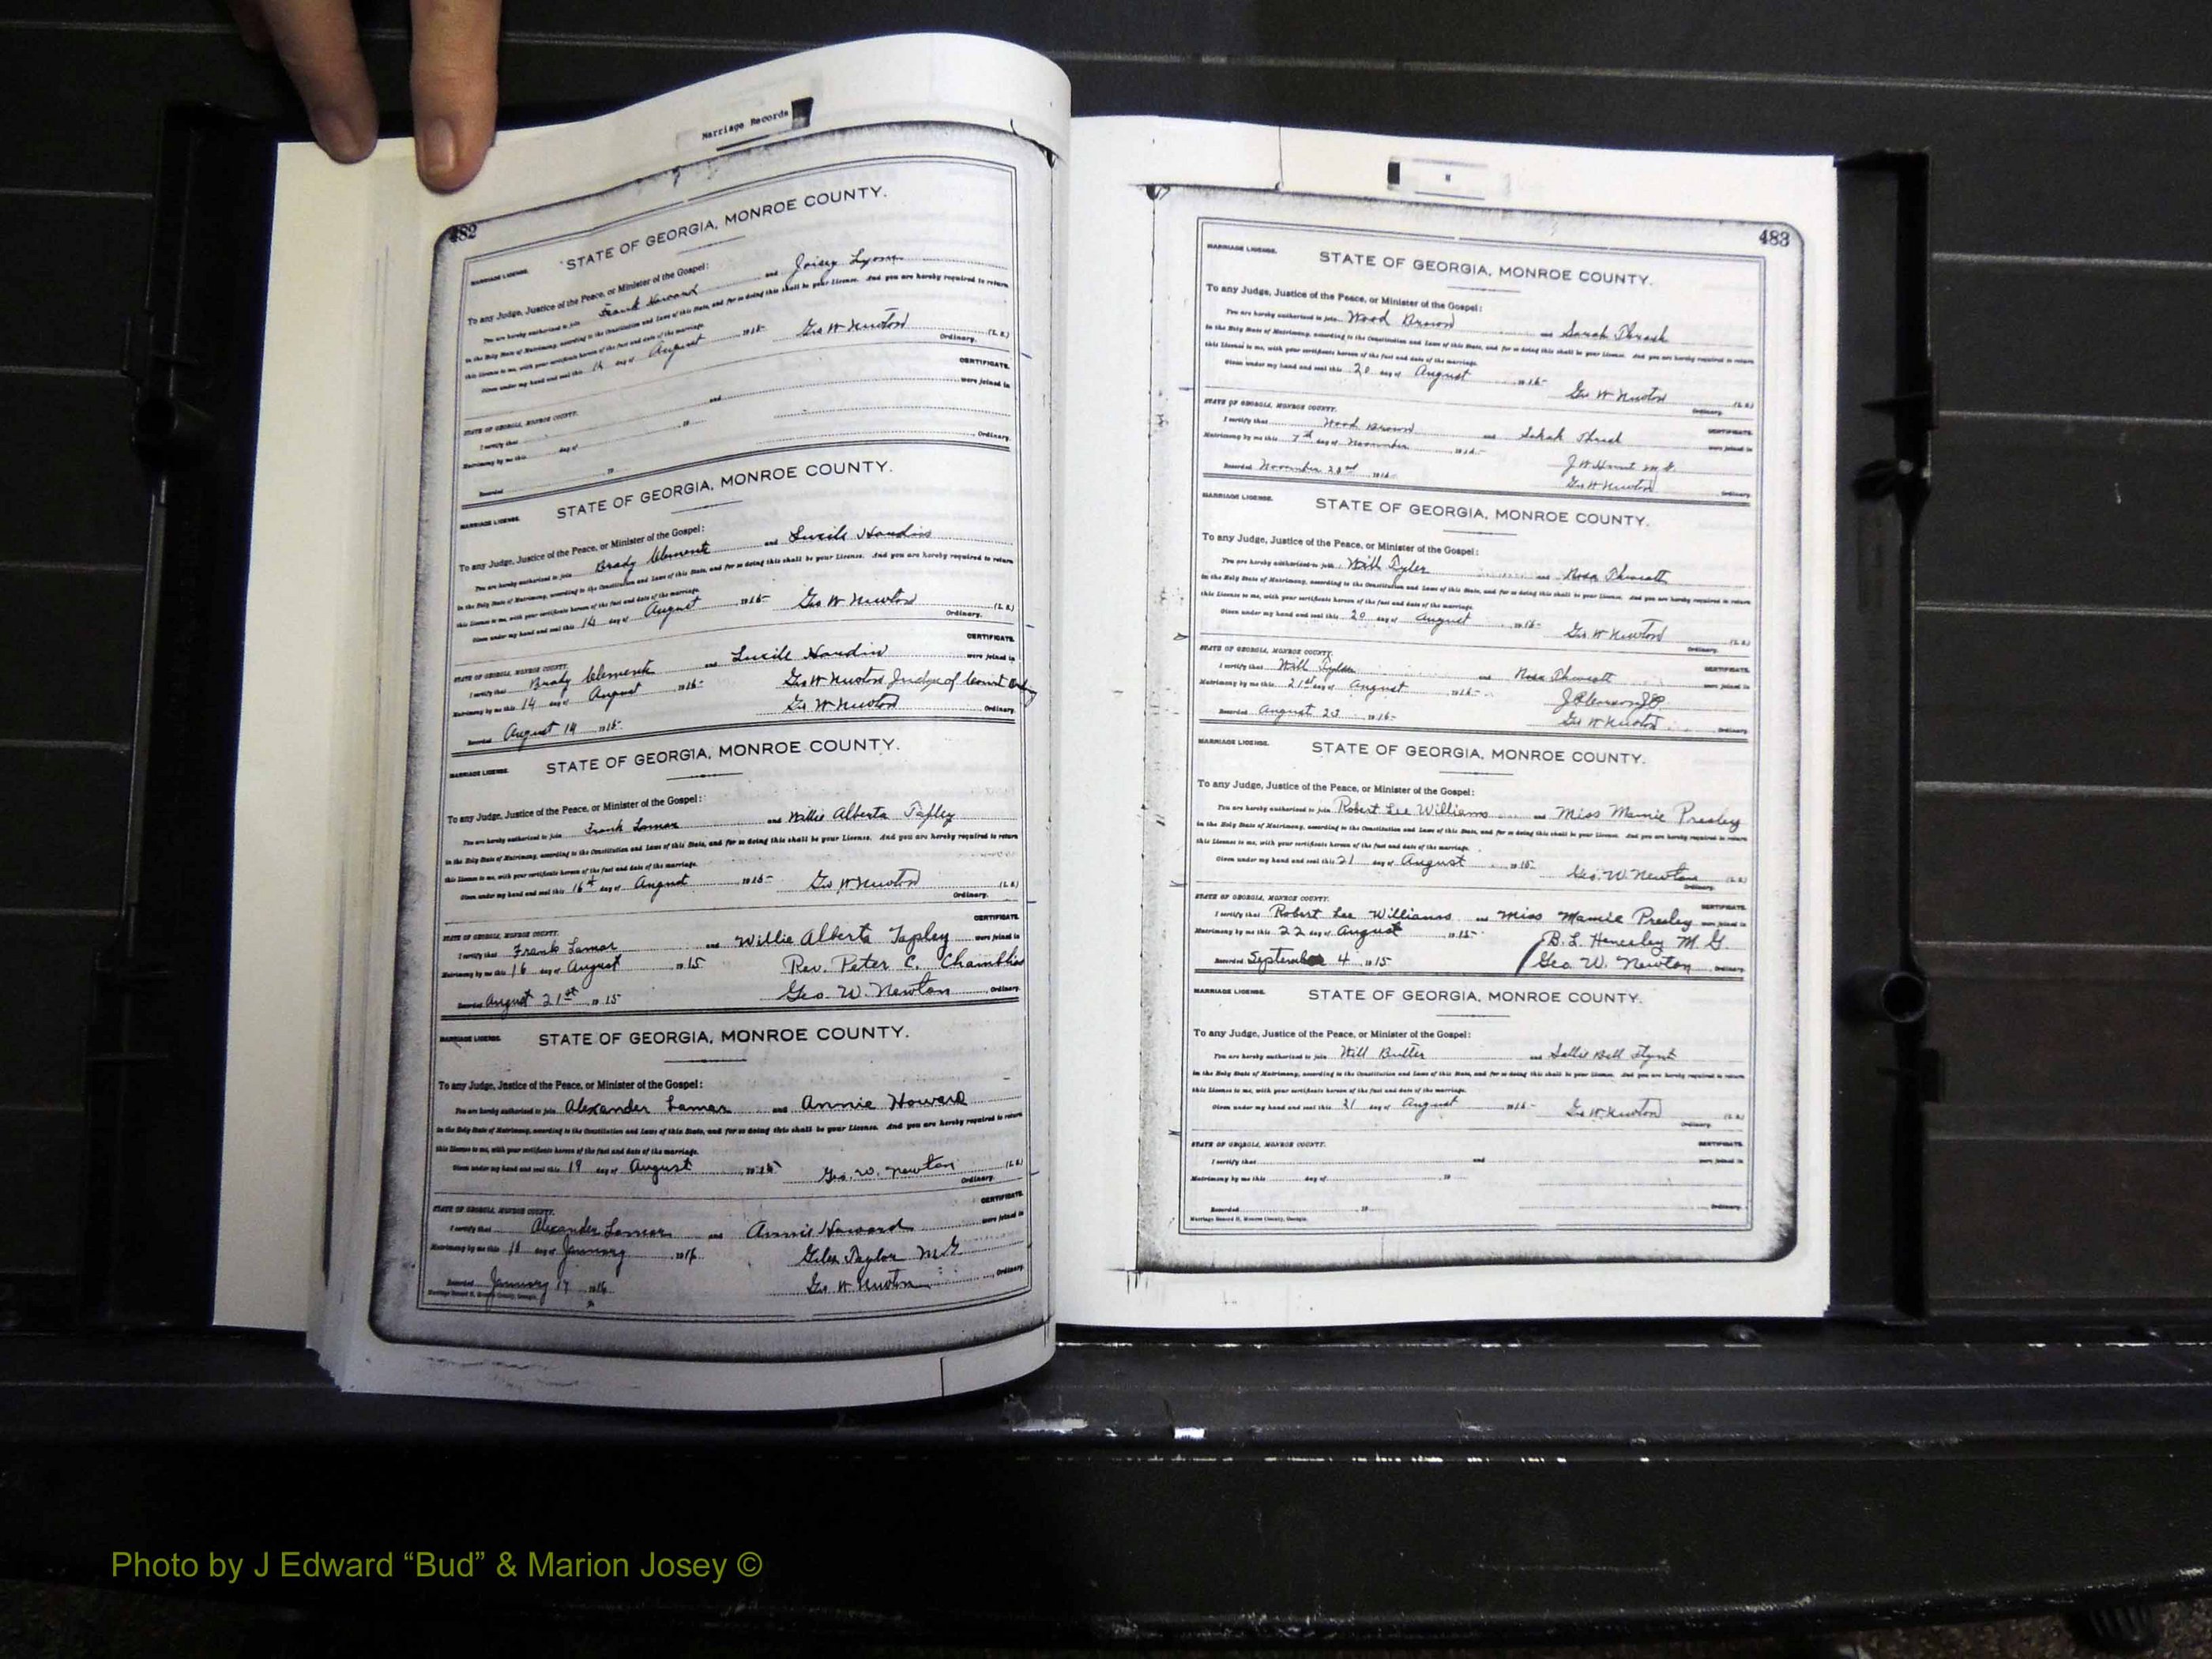 Marriage Records
482
STATE OF GEORGIA, MONROE COUNTY.
MARRIAGE LICENSE.
To any Judge, Justice of the Peace, or Minister of the Gospel:
You are hereby authorized to join Frank Howard and Joisey Lyons
in the Holy State of Matrimony, according to the Constitution and Laws of this State, and for so doing this shall be your License. And you are hereby required to return
this License to me, with your certificate hereon of the fact and date of the marriage.
Given under my hand and seal this 14 day of August 1915 Geo W Newton (L. S.)
Ordinary.
CERTIFICATE.
STATE OF GEORGIA, MONROE COUNTY.
I certify that and were joined in
Matrimony by me this day of 19
Recorded 19 Ordinary.
STATE OF GEORGIA, MONROE COUNTY.
MARRIAGE LICENSE.
To any Judge, Justice of the Peace, or Minister of the Gospel:
You are hereby authorized to join Brady Clements and Lucile Hardin
in the Holy State of Matrimony, according to the Constitution and Laws of this State, and for so doing this shall be your License. And you are hereby required to return
this License to me, with your certificate hereon of the fact and date of the marriage.
Given under my hand and seal this 14 day of August 1915 Geo W Newton (L. S.)
Ordinary.
CERTIFICATE.
STATE OF GEORGIA, MONROE COUNTY.
I certify that Brady Clements and Lucile Hardin were joined in
Matrimony by me this 14 day of August 1915 Geo W Newton Judge of Court
Recorded August 14 1915 Geo W Newton Ordinary.
STATE OF GEORGIA, MONROE COUNTY.
MARRIAGE LICENSE.
To any Judge, Justice of the Peace, or Minister of the Gospel:
You are hereby authorized to join Frank Lamar and Willie Alberta Tapley
in the Holy State of Matrimony, according to the Constitution and Laws of this State, and for so doing this shall be your License. And you are hereby required to return
this License to me, with your certificate hereon of the fact and date of the marriage.
Given under my hand and seal this 16th day of August 1915 Geo W Newton (L. S.)
Ordinary.
CERTIFICATE.
STATE OF GEORGIA, MONROE COUNTY.
I certify that Frank Lamar and Willie Alberta Tapley were joined in
Matrimony by me this 16 day of August 1915 Rev. Peter C. Chambliss
Recorded August 21st 1915 Geo. W. Newton Ordinary.
STATE OF GEORGIA, MONROE COUNTY.
MARRIAGE LICENSE.
To any Judge, Justice of the Peace, or Minister of the Gospel:
You are hereby authorized to join Alexander Lamar and Annie Howard
in the Holy State of Matrimony, according to the Constitution and Laws of this State, and for so doing this shall be your License. And you are hereby required to return
this License to me, with your certificate hereon of the fact and date of the marriage.
Given under my hand and seal this 19 day of August 1915 Geo. W. Newton (L. S.)
Ordinary.
CERTIFICATE.
STATE OF GEORGIA, MONROE COUNTY.
I certify that Alexander Lamar and Annie Howard were joined in
Matrimony by me this 16 day of January 1916 Giles Taylor M.G.
Recorded January 17 1916 Geo W Newton Ordinary.
Marriage Record H, Monroe County, Georgia.
483
MARRIAGE LICENSE.
STATE OF GEORGIA, MONROE COUNTY.
To any Judge, Justice of the Peace, or Minister of the Gospel:
You are hereby authorized to join Wood Brown and Sarah Thrash
in the Holy State of Matrimony, according to the Constitution and Laws of this State, and for so doing this shall be your License. And you are hereby required to return
this License to me, with your certificate hereon of the fact and date of the marriage.
Given under my hand and seal this 20 day of August 1915 Geo W Newton (L. S.)
Ordinary.
STATE OF GEORGIA, MONROE COUNTY.
CERTIFICATE.
I certify that Wood Brown and Sarah were joined in
Matrimony by me this 7th day of November 1915 J W Hunt M.G.
Recorded November 1915 Geo W Newton Ordinary.
MARRIAGE LICENSE.
STATE OF GEORGIA, MONROE COUNTY.
To any Judge, Justice of the Peace, or Minister of the Gospel:
You are hereby authorized to join Will Tyler and Rosa
in the Holy State of Matrimony, according to the Constitution and Laws of this State, and for so doing this shall be your License. And you are hereby required to return
this License to me, with your certificate hereon of the fact and date of the marriage.
Given under my hand and seal this 20 day of August 1915 Geo W Newton (L. S.)
Ordinary.
STATE OF GEORGIA, MONROE COUNTY.
CERTIFICATE.
I certify that Will Tyler and Rosa were joined in
Matrimony by me this 21st day of August 1915
Recorded August 23 1915 Geo W Newton Ordinary.
MARRIAGE LICENSE.
STATE OF GEORGIA, MONROE COUNTY.
To any Judge, Justice of the Peace, or Minister of the Gospel:
You are hereby authorized to join Robert Lee Williams and Miss Mamie Presley
in the Holy State of Matrimony, according to the Constitution and Laws of this State, and for so doing this shall be your License. And you are hereby required to return
this License to me, with your certificate hereon of the fact and date of the marriage.
Given under my hand and seal this 21 day of August 1915 Geo. W. Newton (L. S.)
Ordinary.
STATE OF GEORGIA, MONROE COUNTY.
CERTIFICATE.
I certify that Robert Lee Williams and Miss Mamie Presley were joined in
Matrimony by me this 22 day of August 1915 B. L. Henseley M. G.
Recorded September 4 1915 Geo. W. Newton Ordinary.
MARRIAGE LICENSE.
STATE OF GEORGIA, MONROE COUNTY.
To any Judge, Justice of the Peace, or Minister of the Gospel:
You are hereby authorized to join Will Butler and Sallie Bell Flynt
in the Holy State of Matrimony, according to the Constitution and Laws of this State, and for so doing this shall be your License. And you are hereby required to return
this License to me, with your certificate hereon of the fact and date of the marriage.
Given under my hand and seal this 21 day of August 1915 Geo W Newton (L. S.)
Ordinary.
STATE OF GEORGIA, MONROE COUNTY.
CERTIFICATE.
I certify that and were joined in
Matrimony by me this day of 19
Recorded 19 Ordinary.
Marriage Record H, Monroe County, Georgia.
Photo by J Edward “Bud” & Marion Josey ©